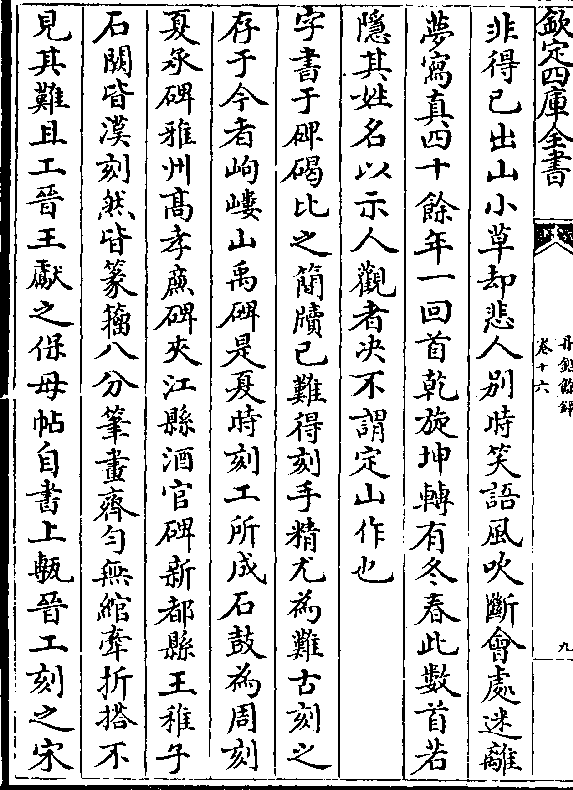 欽定四庫全書
丹鉛餘錄
卷十六
九
非得已出山小草却悲人別時笑語風吹斷會處迷離
夢寫真四十餘年一回首乾旋坤轉有冬春此數首若
隱其姓名以示人觀者决不謂定山作也
字書于碑碣比之簡牘已難得刻手精尤為難古刻之
存于今者岣嶁山禹碑是夏時刻工所成石鼓為周刻
夏承碑雅州髙孝廉碑夾江縣酒官碑新都縣王稚子
石闕皆漢刻然皆篆籀八分筆畫齊匀無綰牽折搭不
見其難且工晉王獻之保母帖自書上甎晉工刻之宋